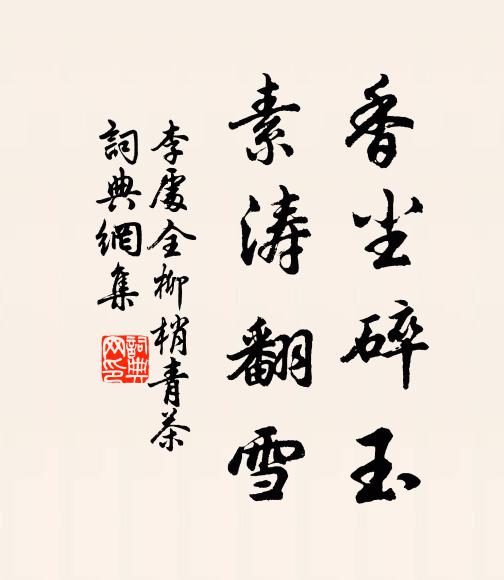 香尘碎玉
素涛翻雪
李處全柳梢青茶
詞典網集
詞典网印